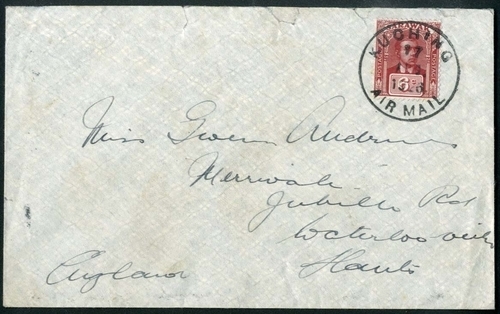 SARAWAK
KUCHING
17
AIR MAIL
Miss Gwen Andrews
Merrivale
Jubilee Rd
Waterlooville
Hants
England